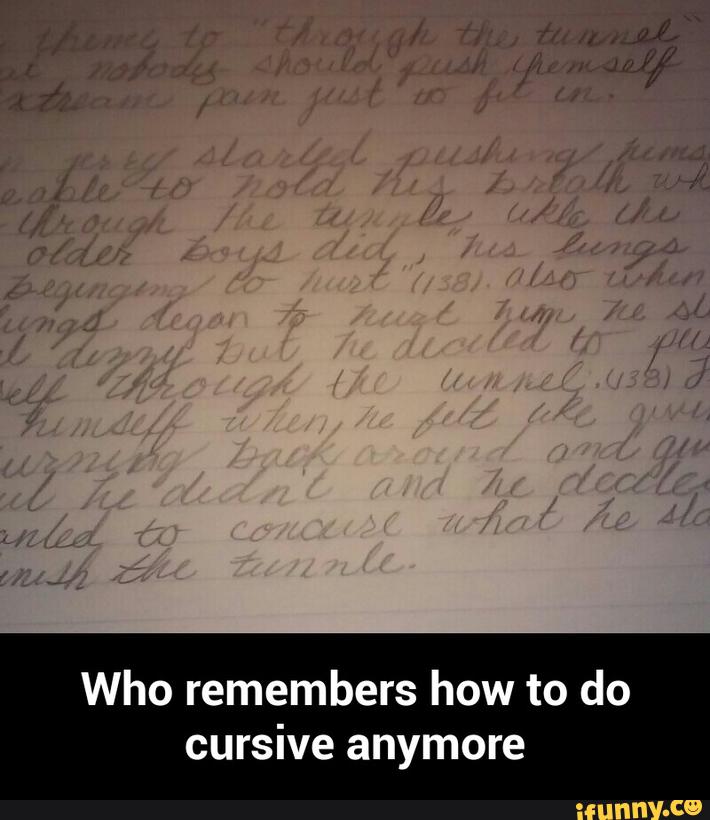 theme to "through the tunnel"
at nobody should push themself
xtream pain just to fit in.
n jerry started pushing hims
eable to hold his breath wh
through the tunnle like the
older boys did, "his lungs
beginging to hurt" (138). also when
lungs began to hurt him he st
dizzy but he decided to pu
self through the tunnel. (138)
himself when he felt like givi
urning back around and giv
he didn't and he decide
anted to what he sta
inish the tunnle.
Who remembers how to do
cursive anymore
ifunny.co